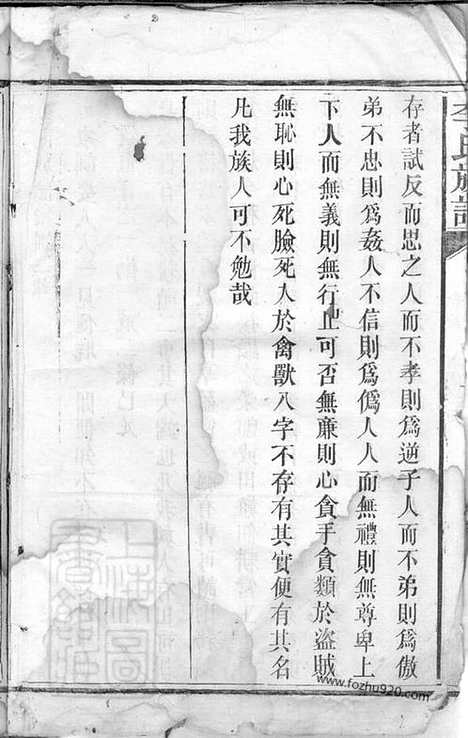 李氏族譜
存者試反而思之人而不孝則爲逆子人而不弟則爲傲
弟不忠則爲姦人不信則爲僞人人而無禮則無尊卑上
下人而無義則無行止可否無亷則心貪手貪類於盜賊
無恥則心死臉死入於禽獸八字不存有其實便有其名
凡我族人可不勉哉
上海圖書館藏
www.fozhu920.com